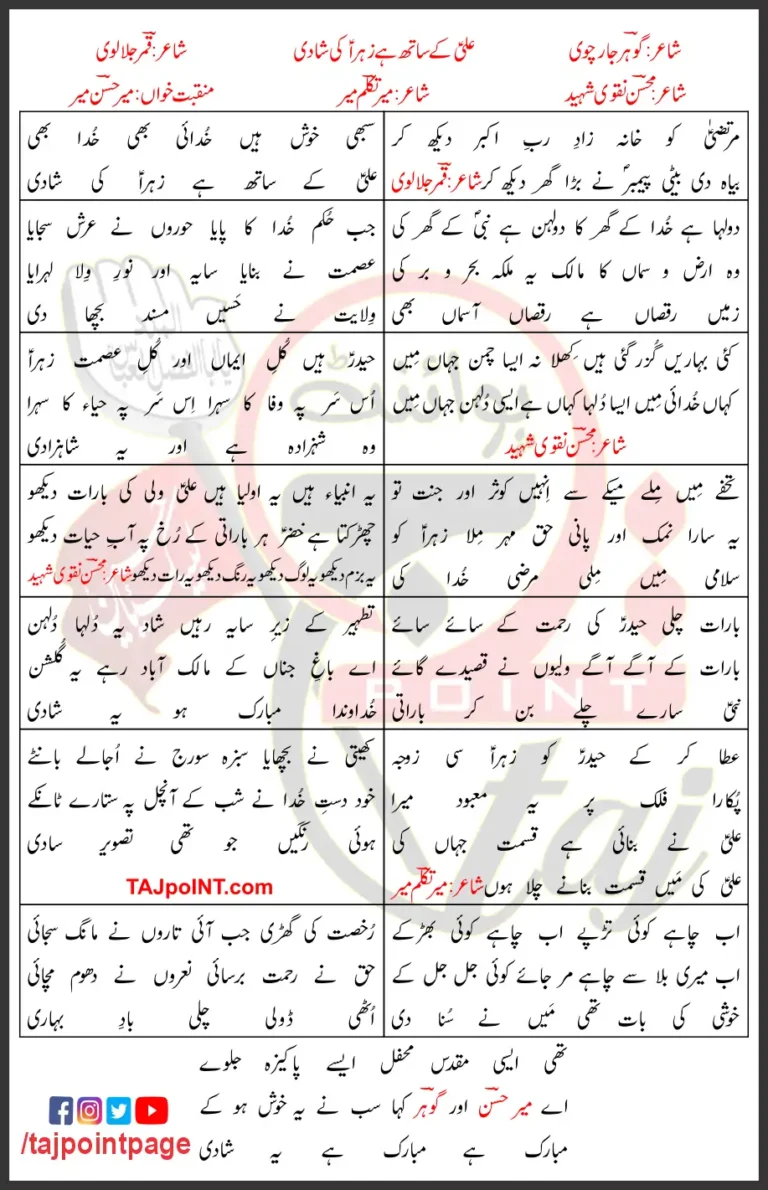 شاعر: گوہر جارچوی
علیؑ کے ساتھ ہے زہراؑ کی شادی
شاعر: قمر جلالوی
شاعر: محسن نقوی شہید
شاعر: میر تکلم میر
منقبت خواں: میر حسن میر
مرتضیٰؑ کو خانہ زادِ ربِ اکبر دیکھ کر
بیاہ دی بیٹی پیمبرؐ نے بڑا گھر دیکھ کر شاعر: قمر جلالوی
سبھی خوش ہیں خُدائی بھی خُدا بھی
علیؑ کے ساتھ ہے زہراؑ کی شادی
دولہا ہے خُدا کے گھر کا دولہن ہے نبیؐ کے گھر کی
وہ ارض و سماں کا مالک یہ ملکہ بحر و بر کی
زمیں رقصاں ہے رقصاں آسماں بھی
جب حُکم خُدا کا پایا حوروں نے عرش سجایا
عصمت نے بنایا سایہ اور نورِ وِلا لہرایا
وِلایت نے حَسیں مسند بچھا دی
کئی بہاریں گُزر گئی ہیں کِھلا نہ ایسا چمن جہاں مِیں
کہاں خُدائی مِیں ایسا دُلہا کہاں ہے ایسی دُلہن جہاں مِیں
شاعر: محسن نقوی شہید
حیدرؑ ہیں گُلِ ایماں اور گُلِ عصمت زہراؑ
اُس سَر پہ وفا کا سہرا اِس سَر پہ حیاء کا سہرا
وہ شہزادہ ہے اور یہ شاہزادی
تحفے مِیں مِلے میکے سے اِنہیں کوثر اور جنت تو
یہ سارا نمک اور پانی حق مہر مِلا زہراؑ کو
سلامی مِیں مِلی مرضی خُدا کی
یہ انبیاء ہیں یہ اولیا ہیں علیؑ ولی کی بارات دیکھو
چھڑکتا ہے خضرؑ ہر باراتی کے رُخ پہ آبِ حیات دیکھو
یہ بزم دیکھو یہ لوگ دیکھو یہ رنگ دیکھو یہ رات دیکھو شاعر: محسن نقوی شہید
بارات چلی حیدرؑ کی رحمت کے سائے سائے
بارات کے آگے آگے ولیوں نے قصیدے گائے
نبیؑ سارے چلے بن کر باراتی
تطہیر کے زیرِ سایہ رہیں شاد یہ دُلہا دُلہن
اے باغِ جناں کے مالک آباد رہے یہ گُلشن
خُداوندا مبارک ہو یہ شادی
عطا کر کے حیدرؑ کو زہراؑ سی زوجہ
پُکارا فلک پر یہ معبود میرا
علیؑ نے بنائی ہے قسمت جہاں کی
علیؑ کی مَیں قسمت بنانے چلا ہوں شاعر: میر تکلم میر
کھیتی نے بچھایا سبزہ سورج نے اُجالے بانٹے
خود دستِ خُدا نے شب کے آنچل پہ ستارے ٹانکے
ہوئی رنگیں جو تھی تصویر سادی
TAJpoINT.com
اب چاہے کوئی تڑپے اب چاہے کوئی بھڑکے
اب میری بلا سے چاہے مر جائے کوئی جل جل کے
خوشی کی بات تھی مَیں نے سُنا دی
رُخصت کی گھڑی جب آئی تاروں نے مانگ سجائی
حق نے رحمت برسائی نعروں نے دھوم مچائی
اُٹھی ڈولی چلی بادِ بہاری
تھی ایسی مقدس محفل ایسے پاکیزہ جلوے
اے میر حسن اور گوہر کہا سب نے یہ خوش ہو کے
مبارک ہے مبارک ہے یہ شادی
/tajpointpage
POINT
taj